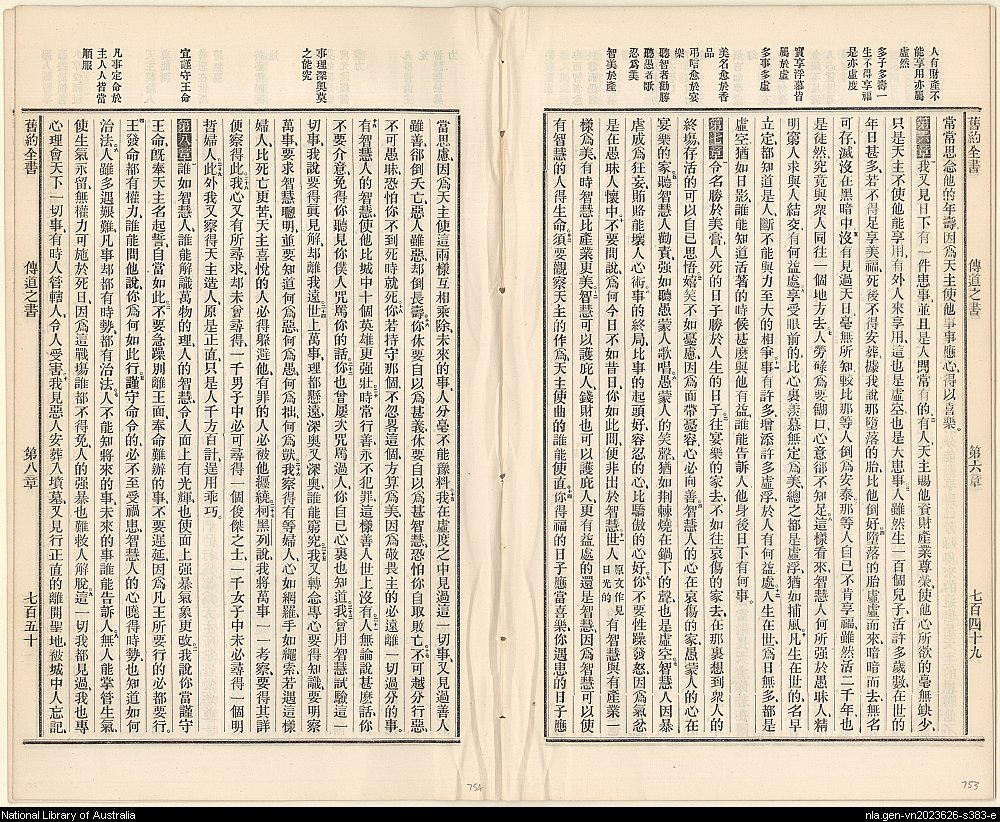 人有財產不
能享用亦屬
虛然
多子多壽一
生不得享福
是亦虛度
實享浮慕皆
屬於虛
多事多虛
美名愈於香
品
弔唁愈於宴
樂
聽智者勸勝
聽愚者歌
忍為美
智美於產
舊約全書
傳道之書
第六章
七百四十九
常常思念他的年壽因為天主使他事事應心得以喜樂
第六章我又見日下有一件患事並且是人間常有的有人天主賜他貲財產業尊榮使他心所欲的毫無缺少
只是天主不使他能享用有外人來享用這也是虛空也是大患事人雖然生一百個兒子活許多歲數在世的
年日甚多若不得足享美福死後不得安葬據我說那墮落的胎比他倒好墮落的胎虛虛而來暗暗而去無名
可存滅沒在黑暗中沒有見過天日毫無所知較比那等人倒為安泰那等人自己不肯享福雖然活二千年也
是徒然究竟與眾人同往一個地方去人勞碌為要餬口心意卻不知足這樣看來智慧人何所强於愚昧人精
明窮人求與人結交有何益處享受眼前的比心裏羨慕無定為美總之都是虛浮猶如捕風凡生在世的名早
立定都知道是人斷不能與力至大的相爭事有許多增添許多虛浮於人有何益處人生在世為日無多都是
虛空猶如日影誰能知道活著的時候甚麼與他有益誰能告訴人他身後日下有何事
第七章令名勝於美膏人死的日子勝於人生的日子往宴樂的家去不如往哀傷的家去在那裏想到眾人的
終塲存活的可以自已思悟嬉笑不如憂慮因為面帶憂容心必向善智慧人的心在哀傷的家愚蒙人的心在
宴樂的家聽智慧人勸責强如聽愚蒙人歌唱愚蒙人的笑聲猶如荆棘燒在鍋下的聲也是虛空智慧人因暴
虐成為狂妄賄賂能壞人心術事的終局比事的起頭好容忍的心比驕傲的心好你不要性躁發怒因為氣忿
是在愚昧人懷中不要問說為何今日不如昔日你如此問便非出於智慧世人原文作見日光的有智慧與有產業一
樣為美有時智慧比產業更美智慧可以護庇人錢財也可以護庇人更有益處的還是智慧因為智慧可以使
有智慧的人得生命須要觀察天主的作為天主使曲的誰能使直你得福的日子應當喜樂你遇患的日子應
事理深奥莫
之能究
宜謹守王命
凡事定命於
主人人皆當
順服
當思慮因為天主使這兩樣互相乘除未來的事人分毫不能豫料我在虛度之中見過這一切事又見過善人
雖善卻倒夭亡惡人雖惡却倒長壽你休要自以為甚義休要自以為甚智慧恐怕你自取敗亡不可越分行惡
不可愚昧恐怕你不到死時就死你若持守那個不忽畧這個方算為美因為敬畏主的必遠離一切過分的事
有智慧人的智慧使他比城中十個英雄更强壯時常行善永不犯罪這樣善人世上沒有人無論說甚麼話你
不要介意免得你聽見你僕人咒罵你的話你也曾屢次咒罵過人你自已心裏也知道我曾用智慧試驗這一
切事我說要得眞見解却離我遠世上萬事理都懸遠深奥又深奥誰能窮究我又轉念專心要得知識要明察
萬事要求智慧聰明並要知道何為惡何為愚何為拙何為獃我察得有等婦人心如網羅手如繩索若遇這樣
婦人比死亡更苦天主喜悅的人必得躲避他有罪的人必被他纏繞柯黑列說我將萬事一一考察要得其詳
便察得此我心又有所尋求却未曾尋得一千男子中必可尋得一個俊傑之士一千女子中未必尋得一個明
哲婦人此外我又察得天主造人原是正直只是人千方百計逞用乖巧
第八章誰如智慧人誰能解識萬物的理人的智慧令人面上有光輝也使面上强暴氣象更改我說你當謹守
王命旣奉天主名起誓自當如此不要急躁別離王面奉命難辦的事不要遲延因為凡王所要行的必都要行
王發命都有權力誰能問他說你為何如此行謹守命令的必不至受禍患智慧人的心曉得時勢也知道如何
治法人雖多遇艱難凡事却都有時勢都有治法人不能知將來的事未來的事誰能告訴人無人能掌管生氣
使生氣永留無權力可施於死日因為這戰塲誰都不得免人的强暴也難救人解脫這一切我都見過我也專
心理會天下一切事有時人管轄人令人受害我見惡人安葬入墳墓又見行正直的離開聖地被城中人忘記
舊約全書
傳道之書
第八章
七百五十
754
753
National Library of Australia
nla.gen-vn2023626-s383-e